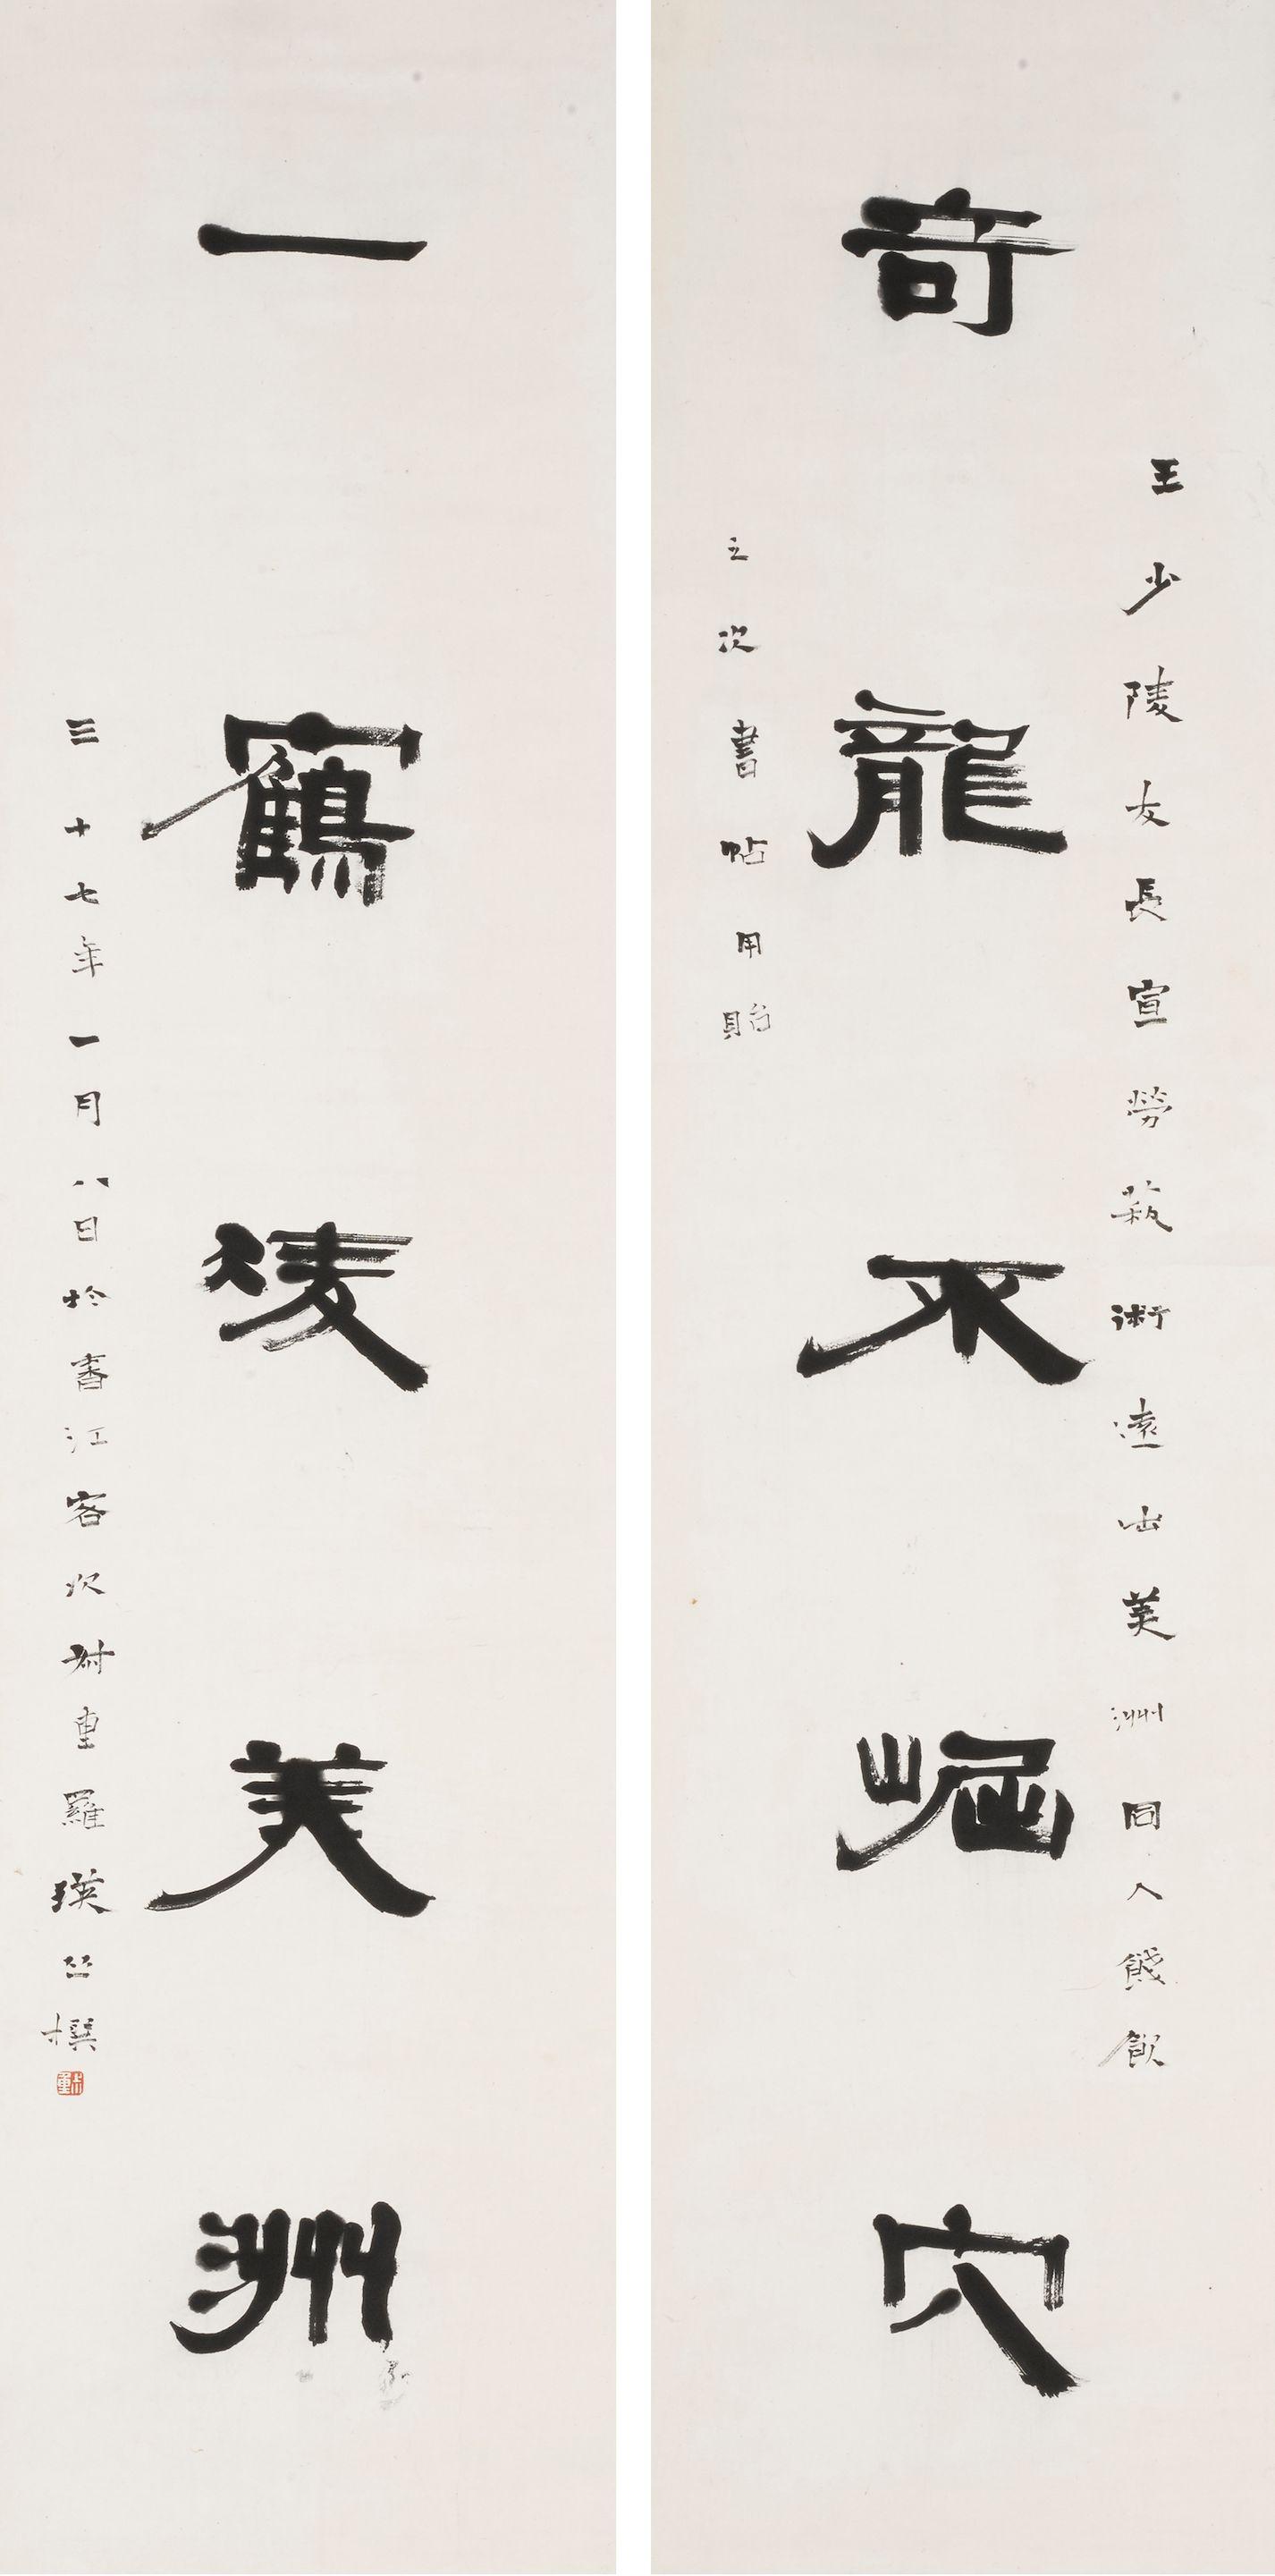 奇龍不崛穴
王少陵友長宣勞蓺術遠出美洲同人餞飲
之次書帖用貽
一鶴凌美洲
三十七年一月八日於香江客次叔重羅瑛竝撰
叔重